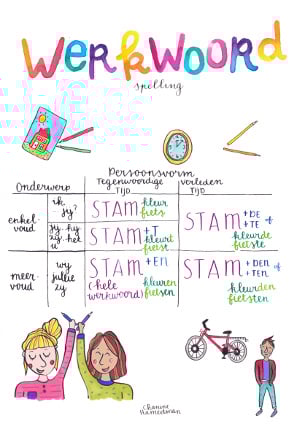 WERKWOORD
spelling
Persoonsvorm
Onderwerp Tegenwoordige TIJD verleden TIJD
enkelvoud ik jij? STAM kleur fiets STAM +DE +TE kleurde fietste
jij hij zij het u STAM +T kleurt fietst
meervoud wij jullie zij STAM +EN (hele werkwoord) kleuren fietsen STAM +DEN +TEN kleurden fietsten